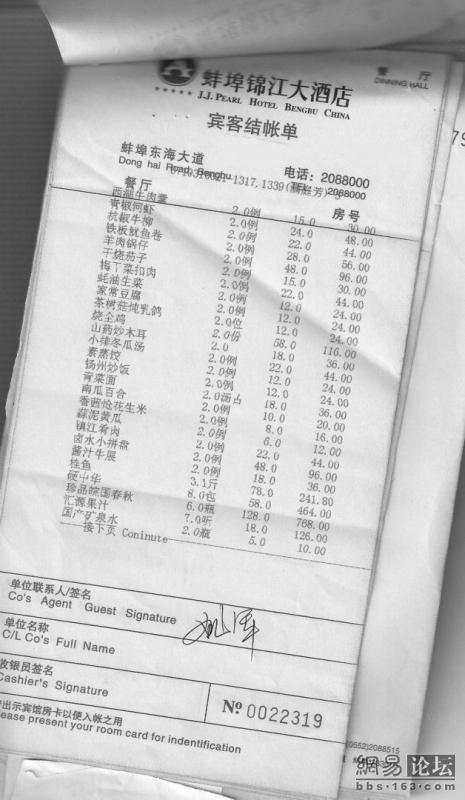 餐 厅
DINNING HALL
蚌埠锦江大酒店
J.J. PEARL HOTEL BENGBU CHINA
宾客结帐单
蚌埠东海大道 电话：2088000
Dong hai Road, Bengbu TEL 2088000
1317,1339
餐厅 房号
西湖牛肉羹 2.0例 15.0 30.00
青椒河虾 2.0例 24.0 48.00
杭椒牛柳 2.0例 22.0 44.00
铁板鱿鱼卷 2.0例 28.0 56.00
羊肉锅仔 2.0例 48.0 96.00
干烧茄子 2.0例 15.0 30.00
梅丫菜扣肉 2.0例 22.0 44.00
蚝油生菜 2.0例 12.0 24.00
家常豆腐 2.0例 12.0 24.00
茶树菇炖乳鸽 2.0位 12.0 24.00
烧全鸡 2.0份 58.0 116.00
山药炒木耳 2.0 18.0 36.00
小排冬瓜汤 2.0例 22.0 44.00
素蒸饺 2.0例 12.0 24.00
扬州炒饭 2.0例 12.0 24.00
青菜面 2.0 18.0 36.00
南瓜百合 2.0例 10.0 20.00
香茜炝花生米 2.0例 8.0 16.00
蒜泥黄瓜 2.0例 6.0 12.00
镇江肴肉 2.0例 22.0 44.00
卤水小拼盘 2.0例 48.0 96.00
酱汁牛展 2.0例 18.0 36.00
桂鱼 3.1斤 78.0 241.80
硬中华 8.0包 58.0 464.00
珍品皖国春秋 6.0瓶 128.0 768.00
汇源果汁 7.0听 18.0 126.00
国产矿泉水 2.0瓶 5.0 10.00
接下页 Coninute
单位联系人/签名
Co's Agent Guest Signature
单位名称
C/L Co's Full Name
收银员签名
Cashier's Signature
№ 0022319
出示宾馆房卡以便入帐之用
lease present your room card for indentification
(0552)2088515
網易 论坛
bbs·163·com